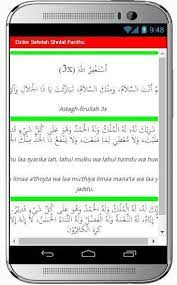 9:48
Dzikir Setelah Sholat Fardhu
أَسْتَغْفِرُ اللهَ (3x)
أَنْتَ السَّلاَمُ، وَمِنْكَ السَّلاَمُ، تَبَارَكْتَ يَا ذَا الْجَلاَلِ
Astagh-firullah 3x
شَرِيْكَ لَهُ، لَهُ الْمُلْكُ وَلَهُ الْحَمْدُ وَهُوَ عَلَى كُلِّ
laa syarika lah, lahul mulku wa lahul hamdu wa
limaa a'thoyta wa laa mu'thiya limaa mana'ta wa laa
jaddu.
لَهُ الْمُلْكُ وَلَهُ الْحَمْدُ وَهُوَ عَلَى كُلِّ شَيْءٍ
لَهُ النِّعْمَةُ وَلَهُ الْفَضْلُ وَلَهُ الثَّنَاءُ الْحَسَنُ
كَرِهَ الْكَافِرُوْنَ